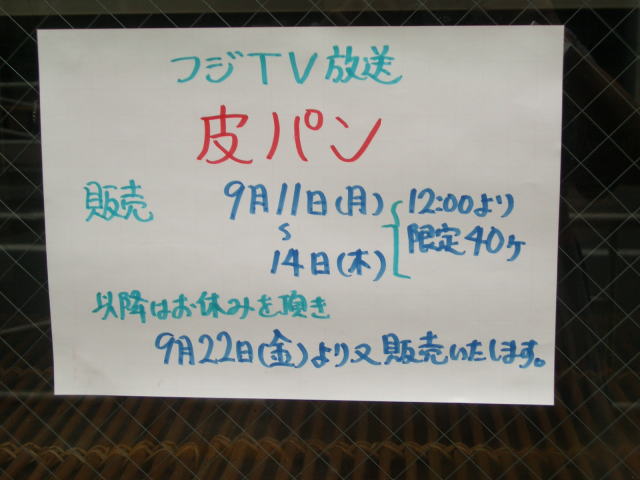 フジTV放送
皮パン
販売 9月11日(月) 12:00より
〜 限定40ヶ
14日(木)
以降はお休みを頂き
9月22日(金)より又販売いたします。